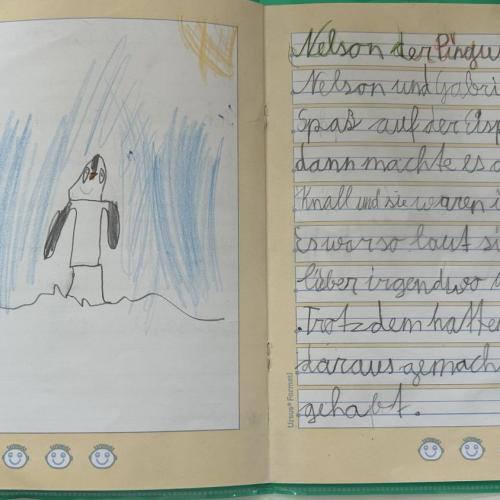 Nelson der Pingu
Nelson und Gabri
Spaß auf der Eisp
dann machte es
Knall und sie waren i
Es war so laut si
lieber irgendwo
Trotzdem hatte
daraus gemach
gehabt.
Ursus® Format